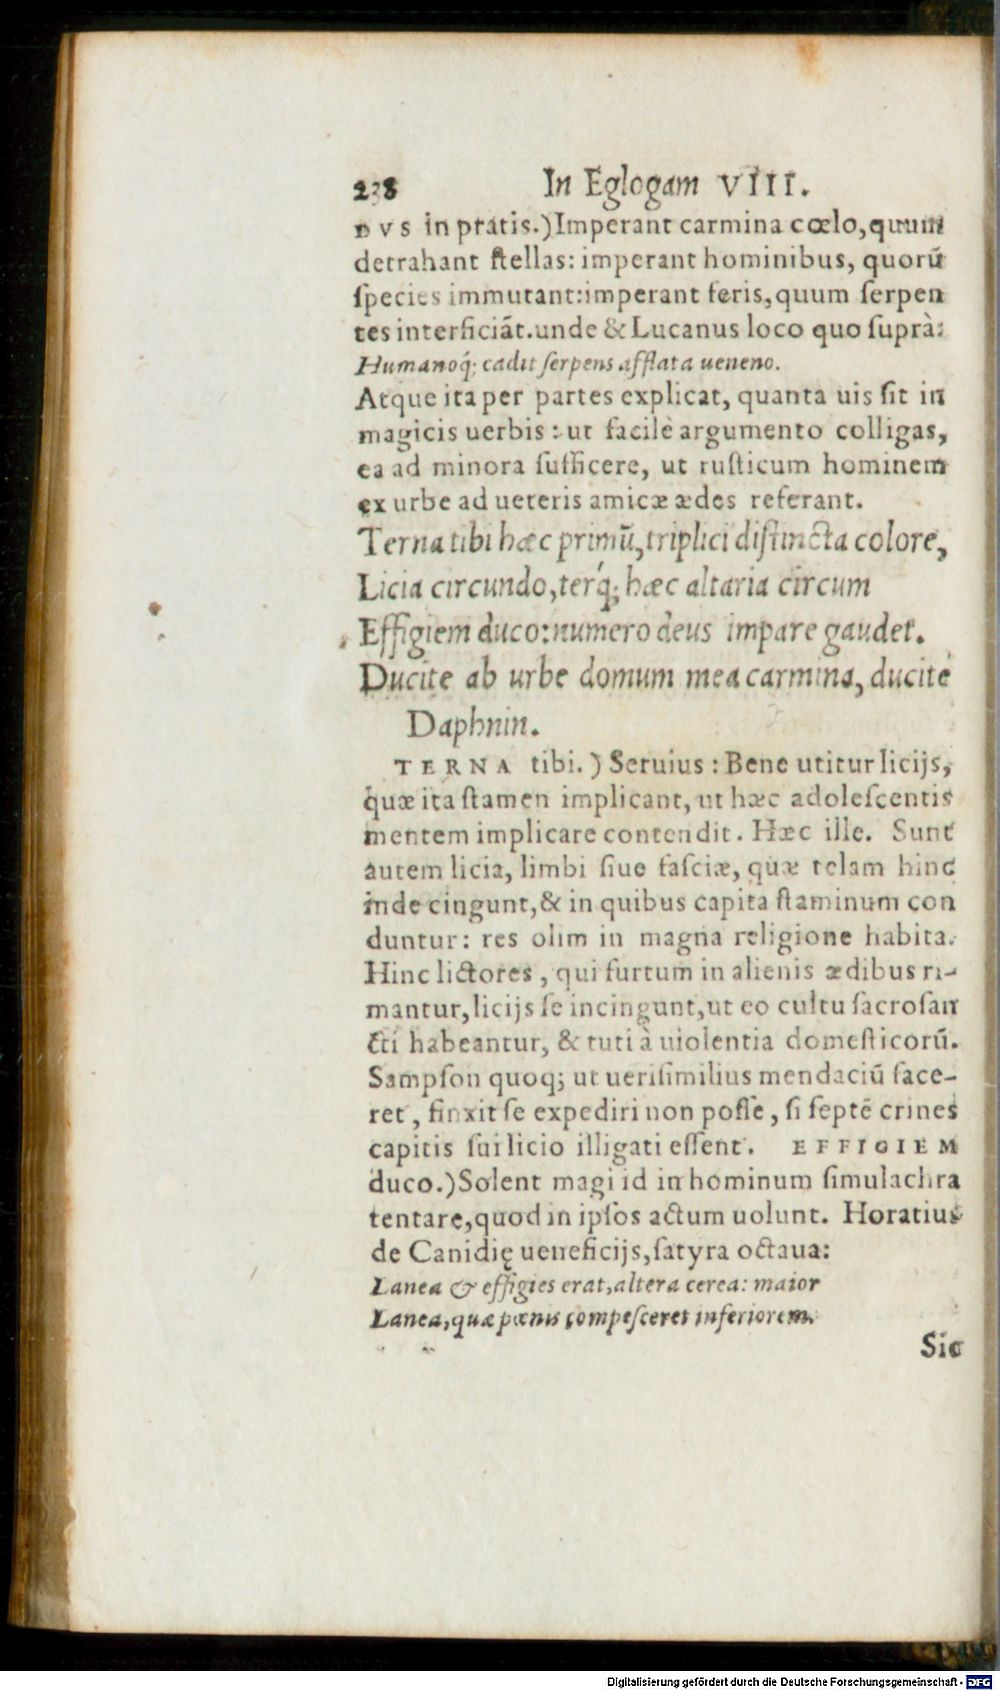 238 In Eglogam VIII.
DVS in pratis.) Imperant carmina cœlo, quum
detrahant ſtellas: imperant hominibus, quorũ
ſpecies immutant: imperant feris, quum ſerpen
tes interficiãt. unde & Lucanus loco quo ſuprà:
Humanoq́; cadit ſerpens afflata ueneno.
Atque ita per partes explicat, quanta uis ſit in
magicis uerbis: ut facilè argumento colligas,
ea ad minora ſufficere, ut ruſticum hominem
ex urbe ad ueteris amicæ ædes referant.
Terna tibi hæc primũ, triplici diſtincta colore,
Licia circundo, terq́; hæc altaria circum
Effigiem duco: numero deus impare gaudet.
Ducite ab urbe domum mea carmina, ducite
Daphnin.
TERNA tibi.) Seruius: Bene utitur licijs,
quæ ita ſtamen implicant, ut hæc adoleſcentis
mentem implicare contendit. Hæc ille. Sunt
autem licia, limbi ſiue faſciæ, quæ telam hinc
inde cingunt, & in quibus capita ſtaminum con
duntur: res olim in magna religione habita.
Hinc lictores, qui furtum in alienis ædibus ri-
mantur, licijs ſe incingunt, ut eo cultu ſacroſan
cti habeantur, & tuti à uiolentia domeſticorũ.
Sampſon quoq; ut ueriſimilius mendaciũ face-
ret, finxit ſe expediri non poſſe, ſi ſeptẽ crines
capitis ſui licio illigati eſſent. EFFIGIEM
duco.) Solent magi id in hominum ſimulachra
tentare, quod in ipſos actum uolunt. Horatius
de Canidię ueneficijs, ſatyra octaua:
Lanea & effigies erat, altera cerea: maior
Lanea, quæ pœnis compeſceret inferiorem.
Sic
Digitalisierung gefördert durch die Deutsche Forschungsgemeinschaft - DFG